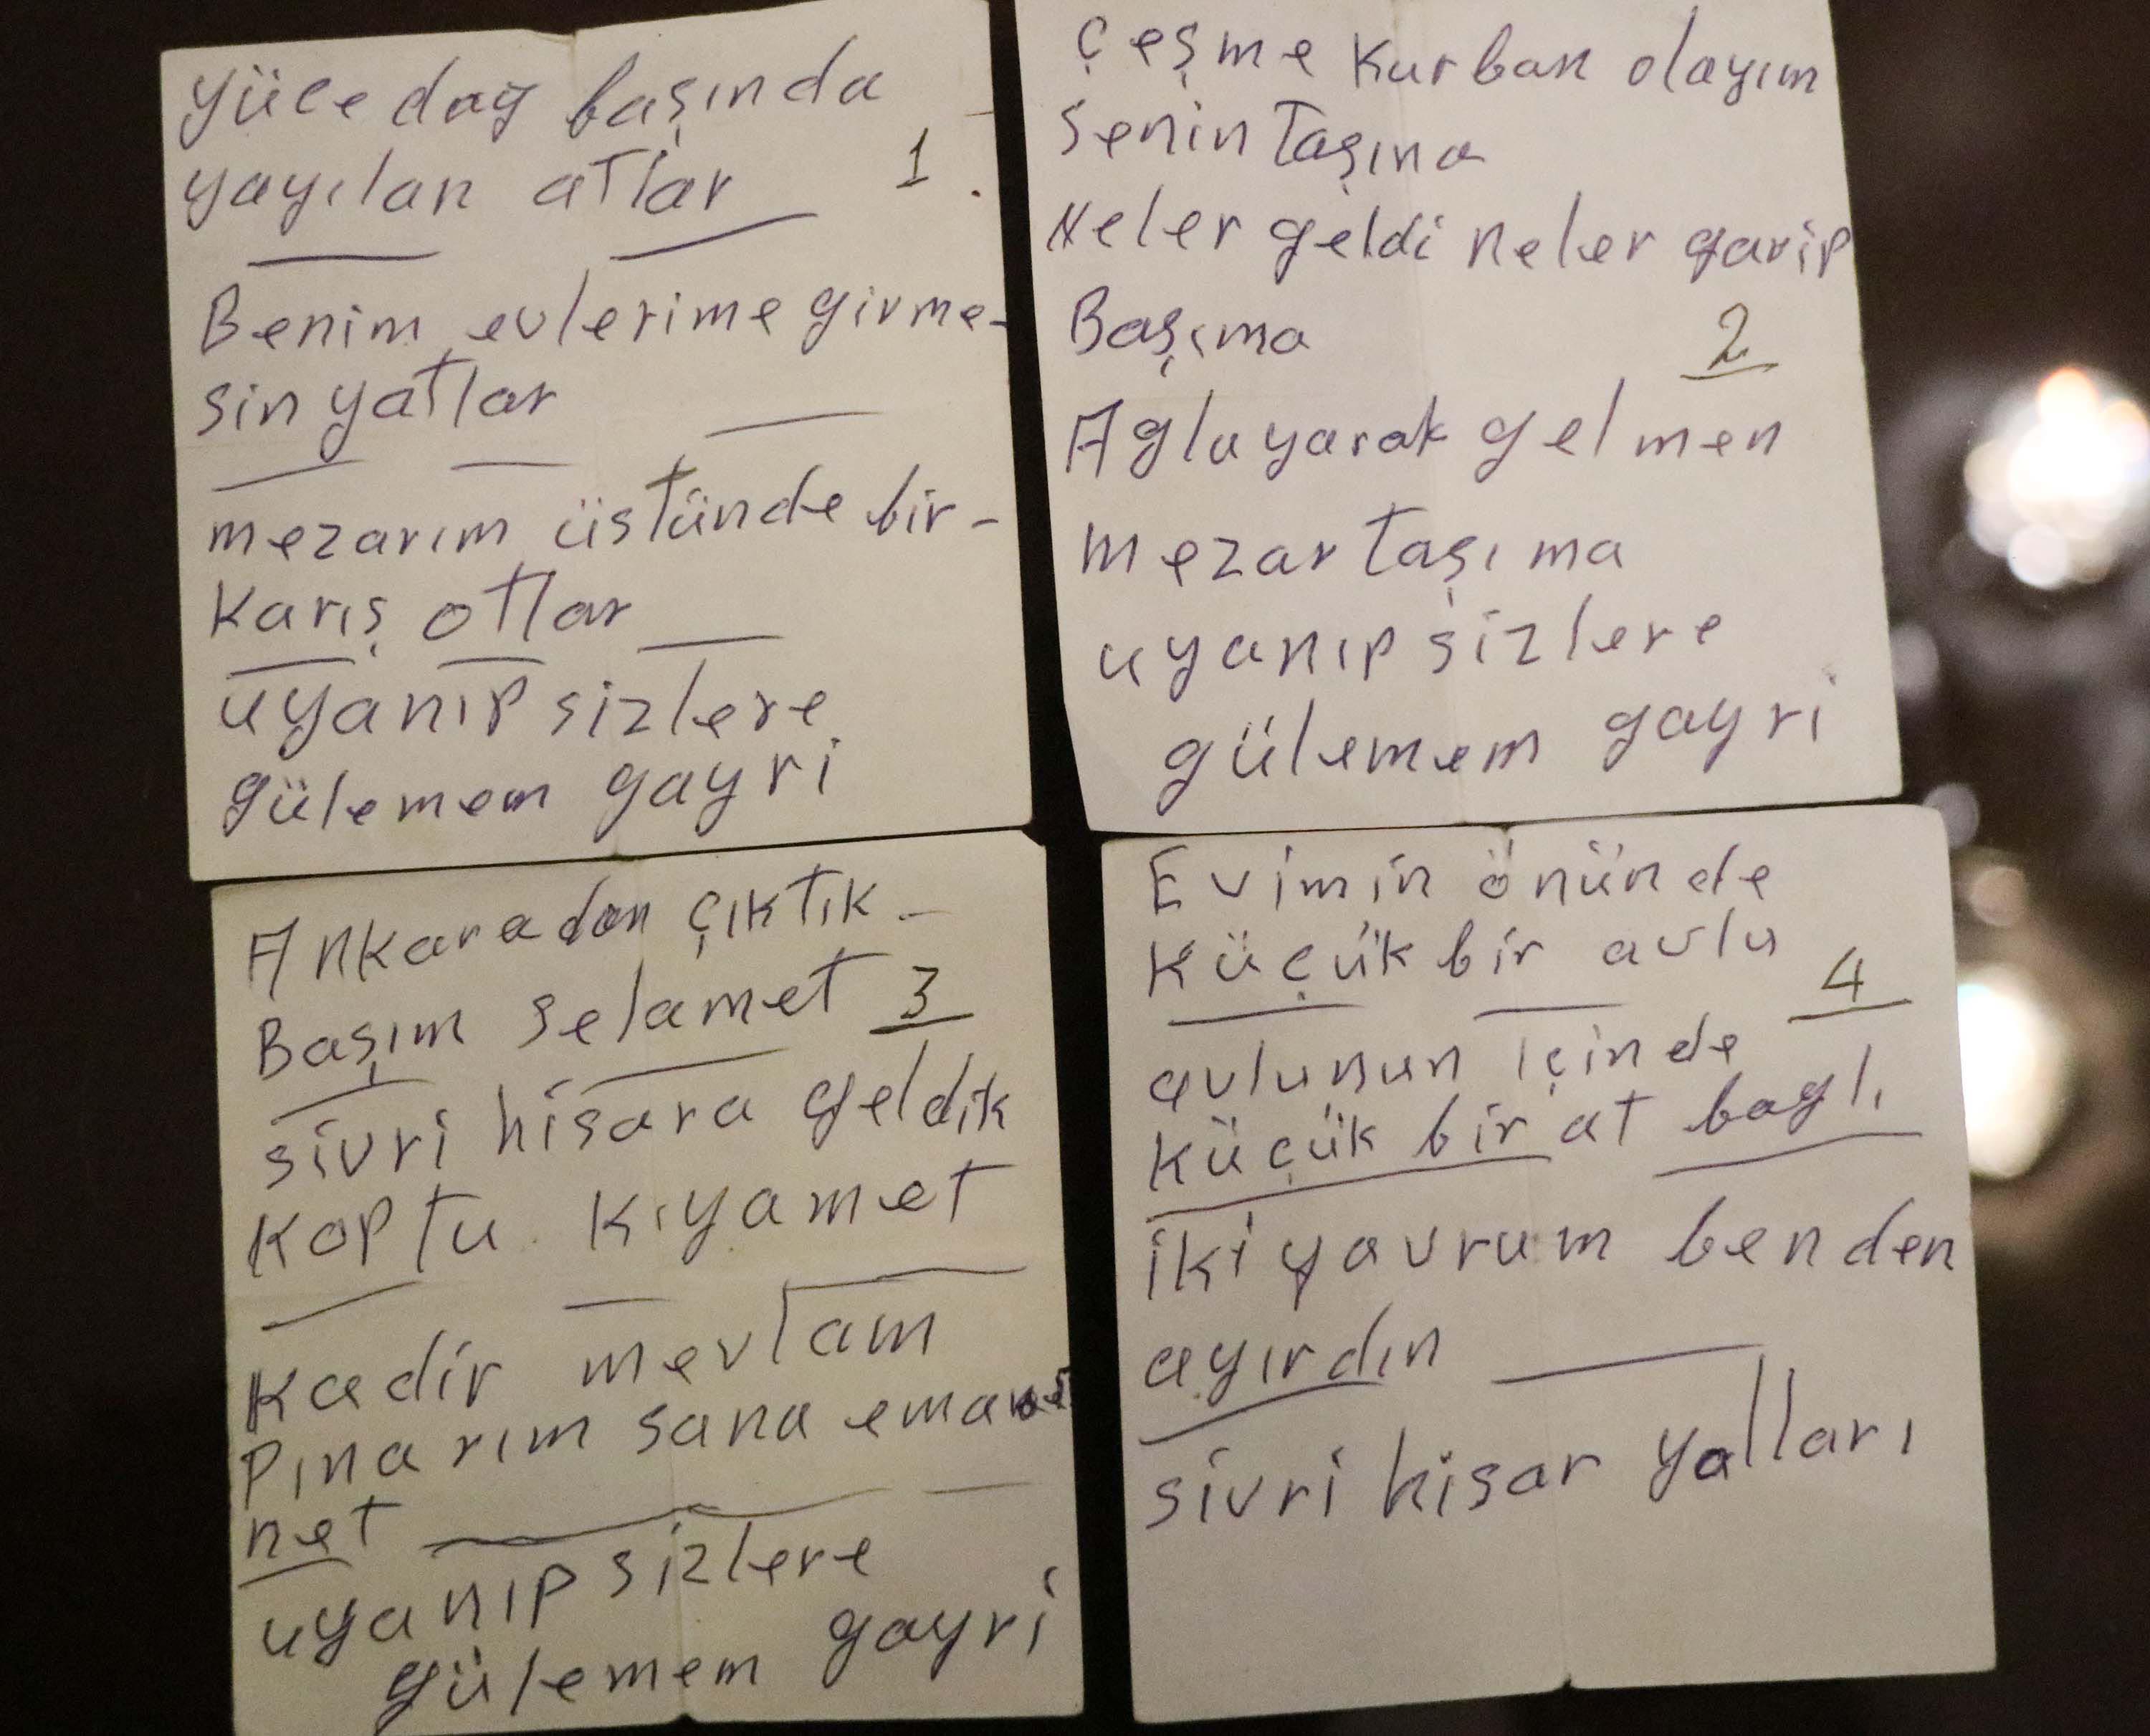 yüce dağ başında
yayılan atlar
1
Benim evlerime girme-
sin yatlar
mezarım üstünde bir-
Karış otlar
uyanıp sizlere
gülemem gayri
çeşme Kurban olayım
senin Taşına
Neler geldi neler garip
Başıma
2
Aglayarak gelmen
mezar Taşıma
uyanıp sizlere
gülemem gayri
Ankaradan çıktık
Başım selamet
3
sivri hisara geldik
Koptu kıyamet
Kadir mevlam
Pınarım sana ema
net
uyanıp sizlere
gülemem gayri
Evimin önünde
Küçük bir avlu
4
avlunun içinde
Küçük bir at baglı
iki yavrum benden
ayırdın
sivri hisar yolları